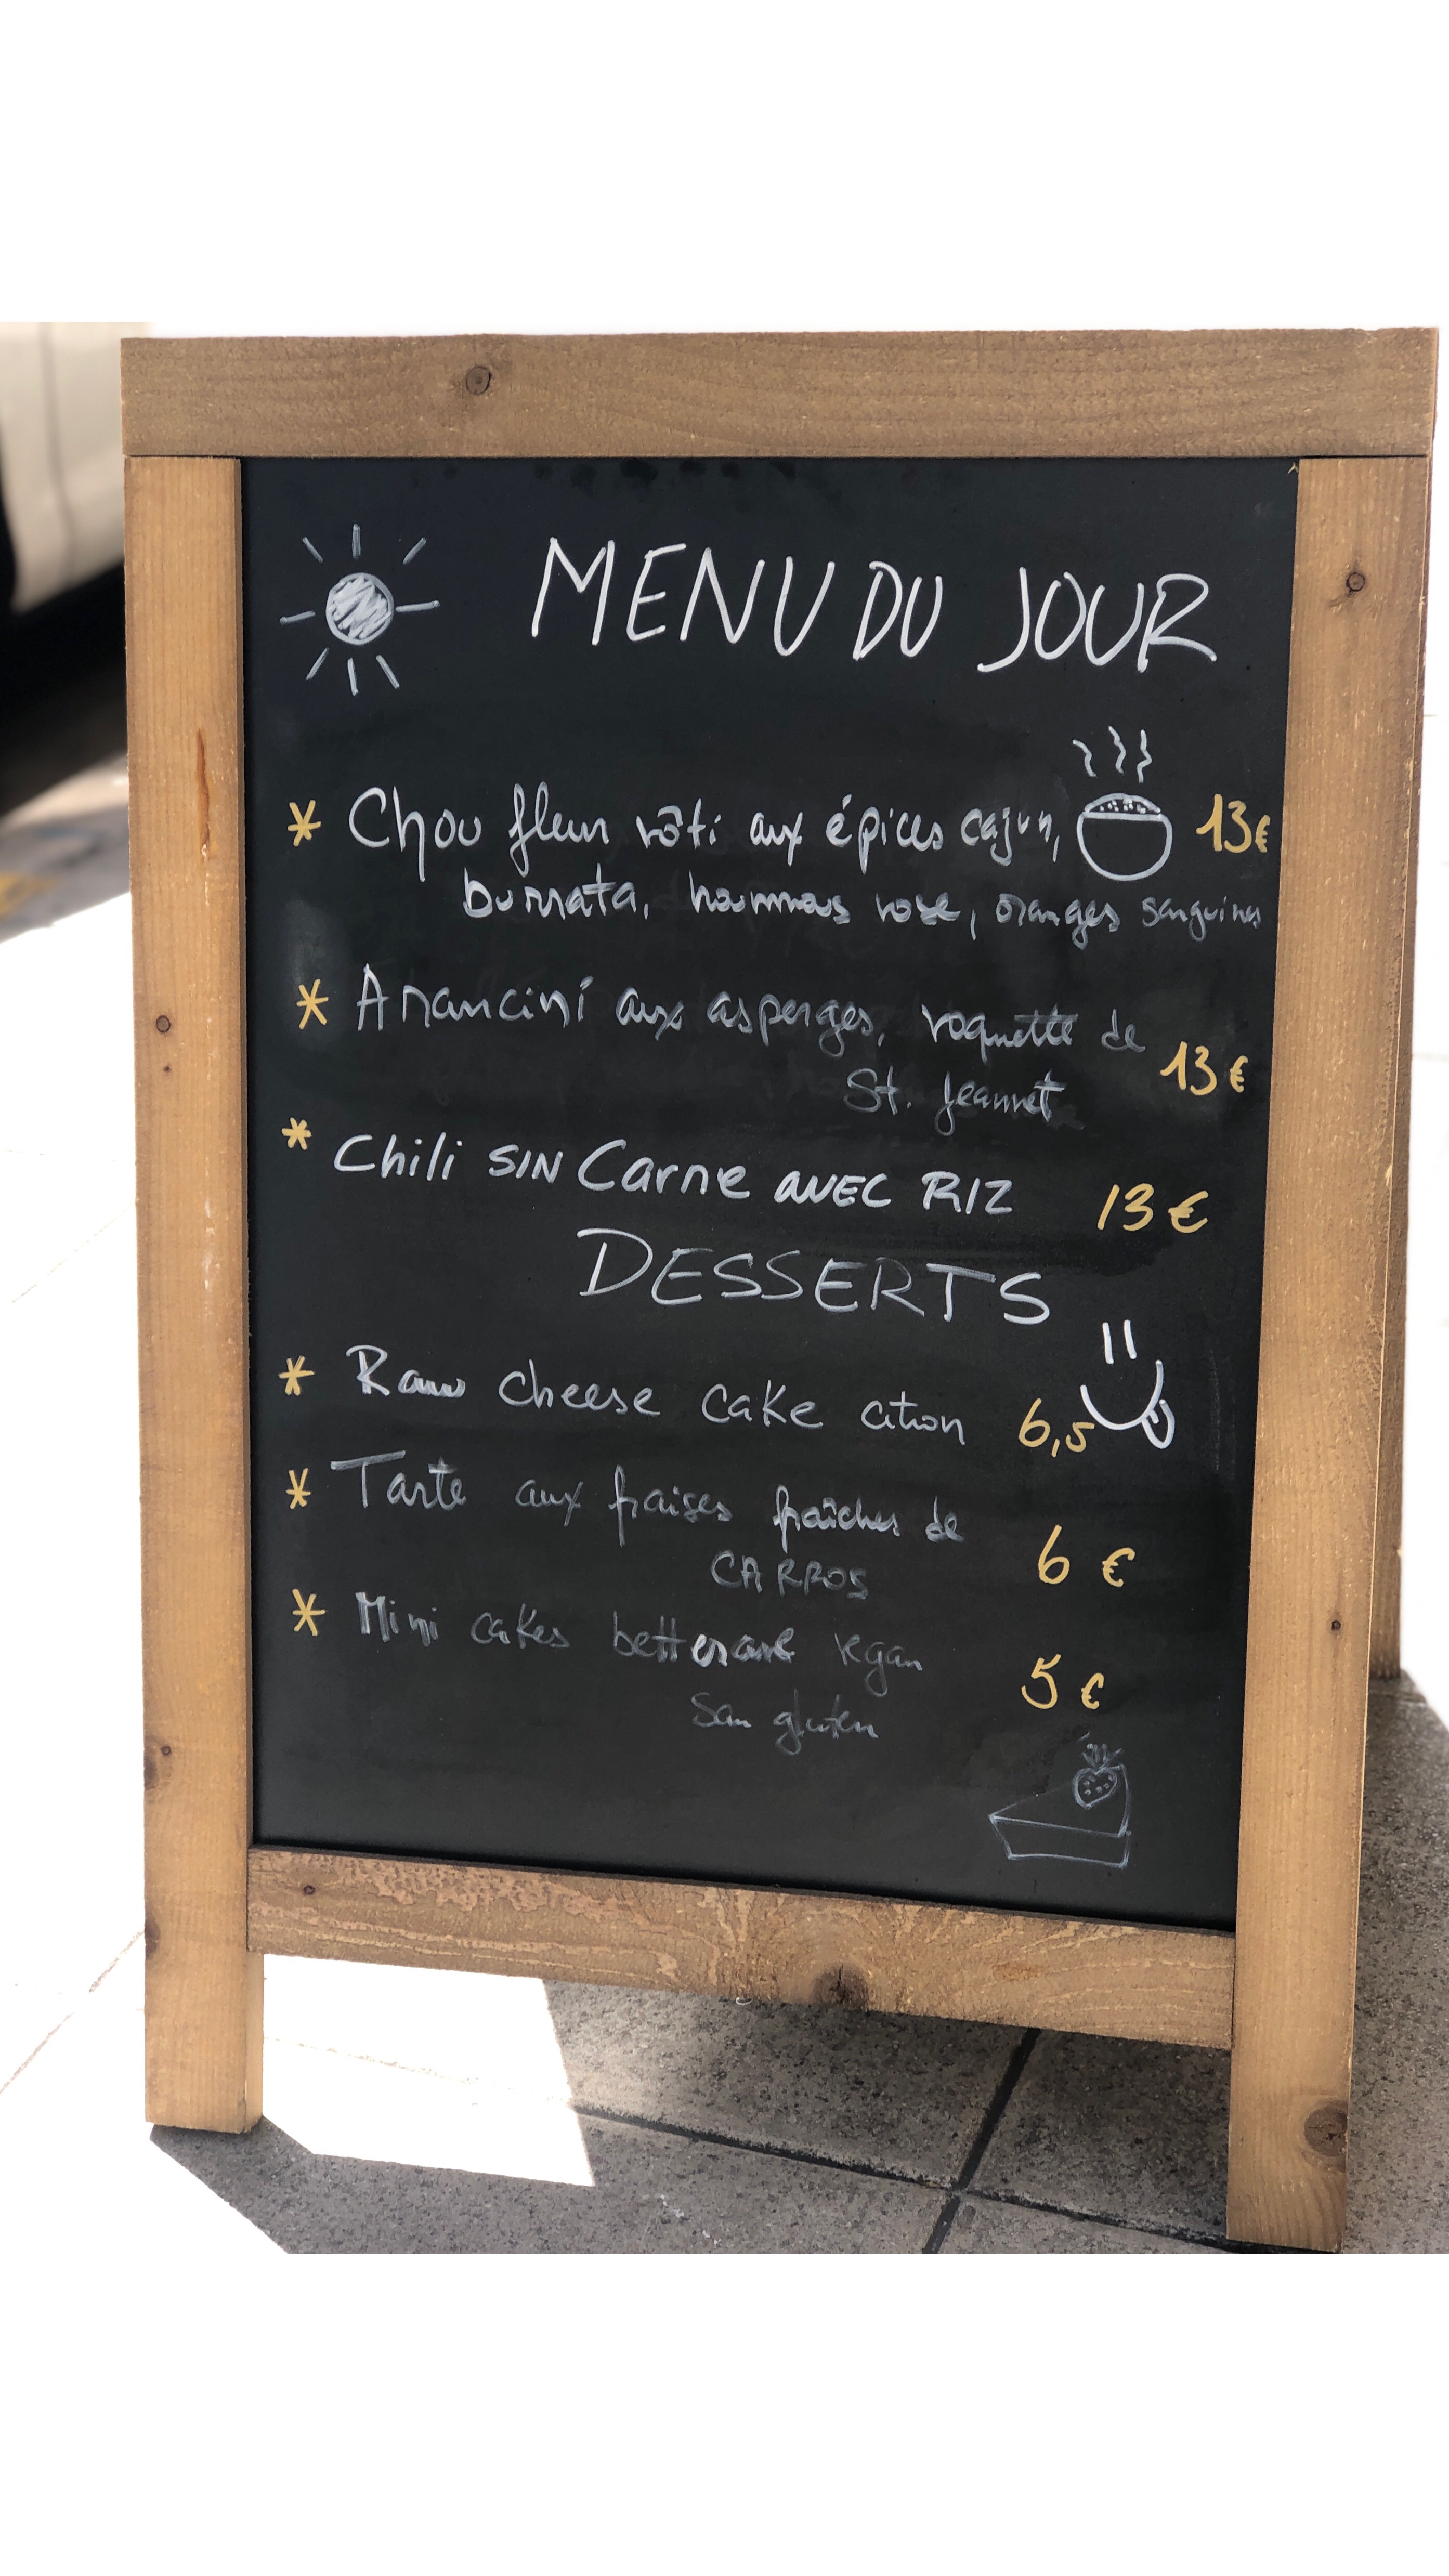 MENU DU JOUR
* Chou fleur rôti aux épices cajun, 13€
burrata, houmous rose, oranges sanguines
* Arancini aux asperges, roquette de
13€
St. Jeannet
* Chili SIN Carne AVEC RIZ 13€
DESSERTS
* Raw cheese cake citron 6,5
* Tarte aux fraises fraîches de
CARROS 6 €
* Mini cakes betterave vegan
5 €
San gluten